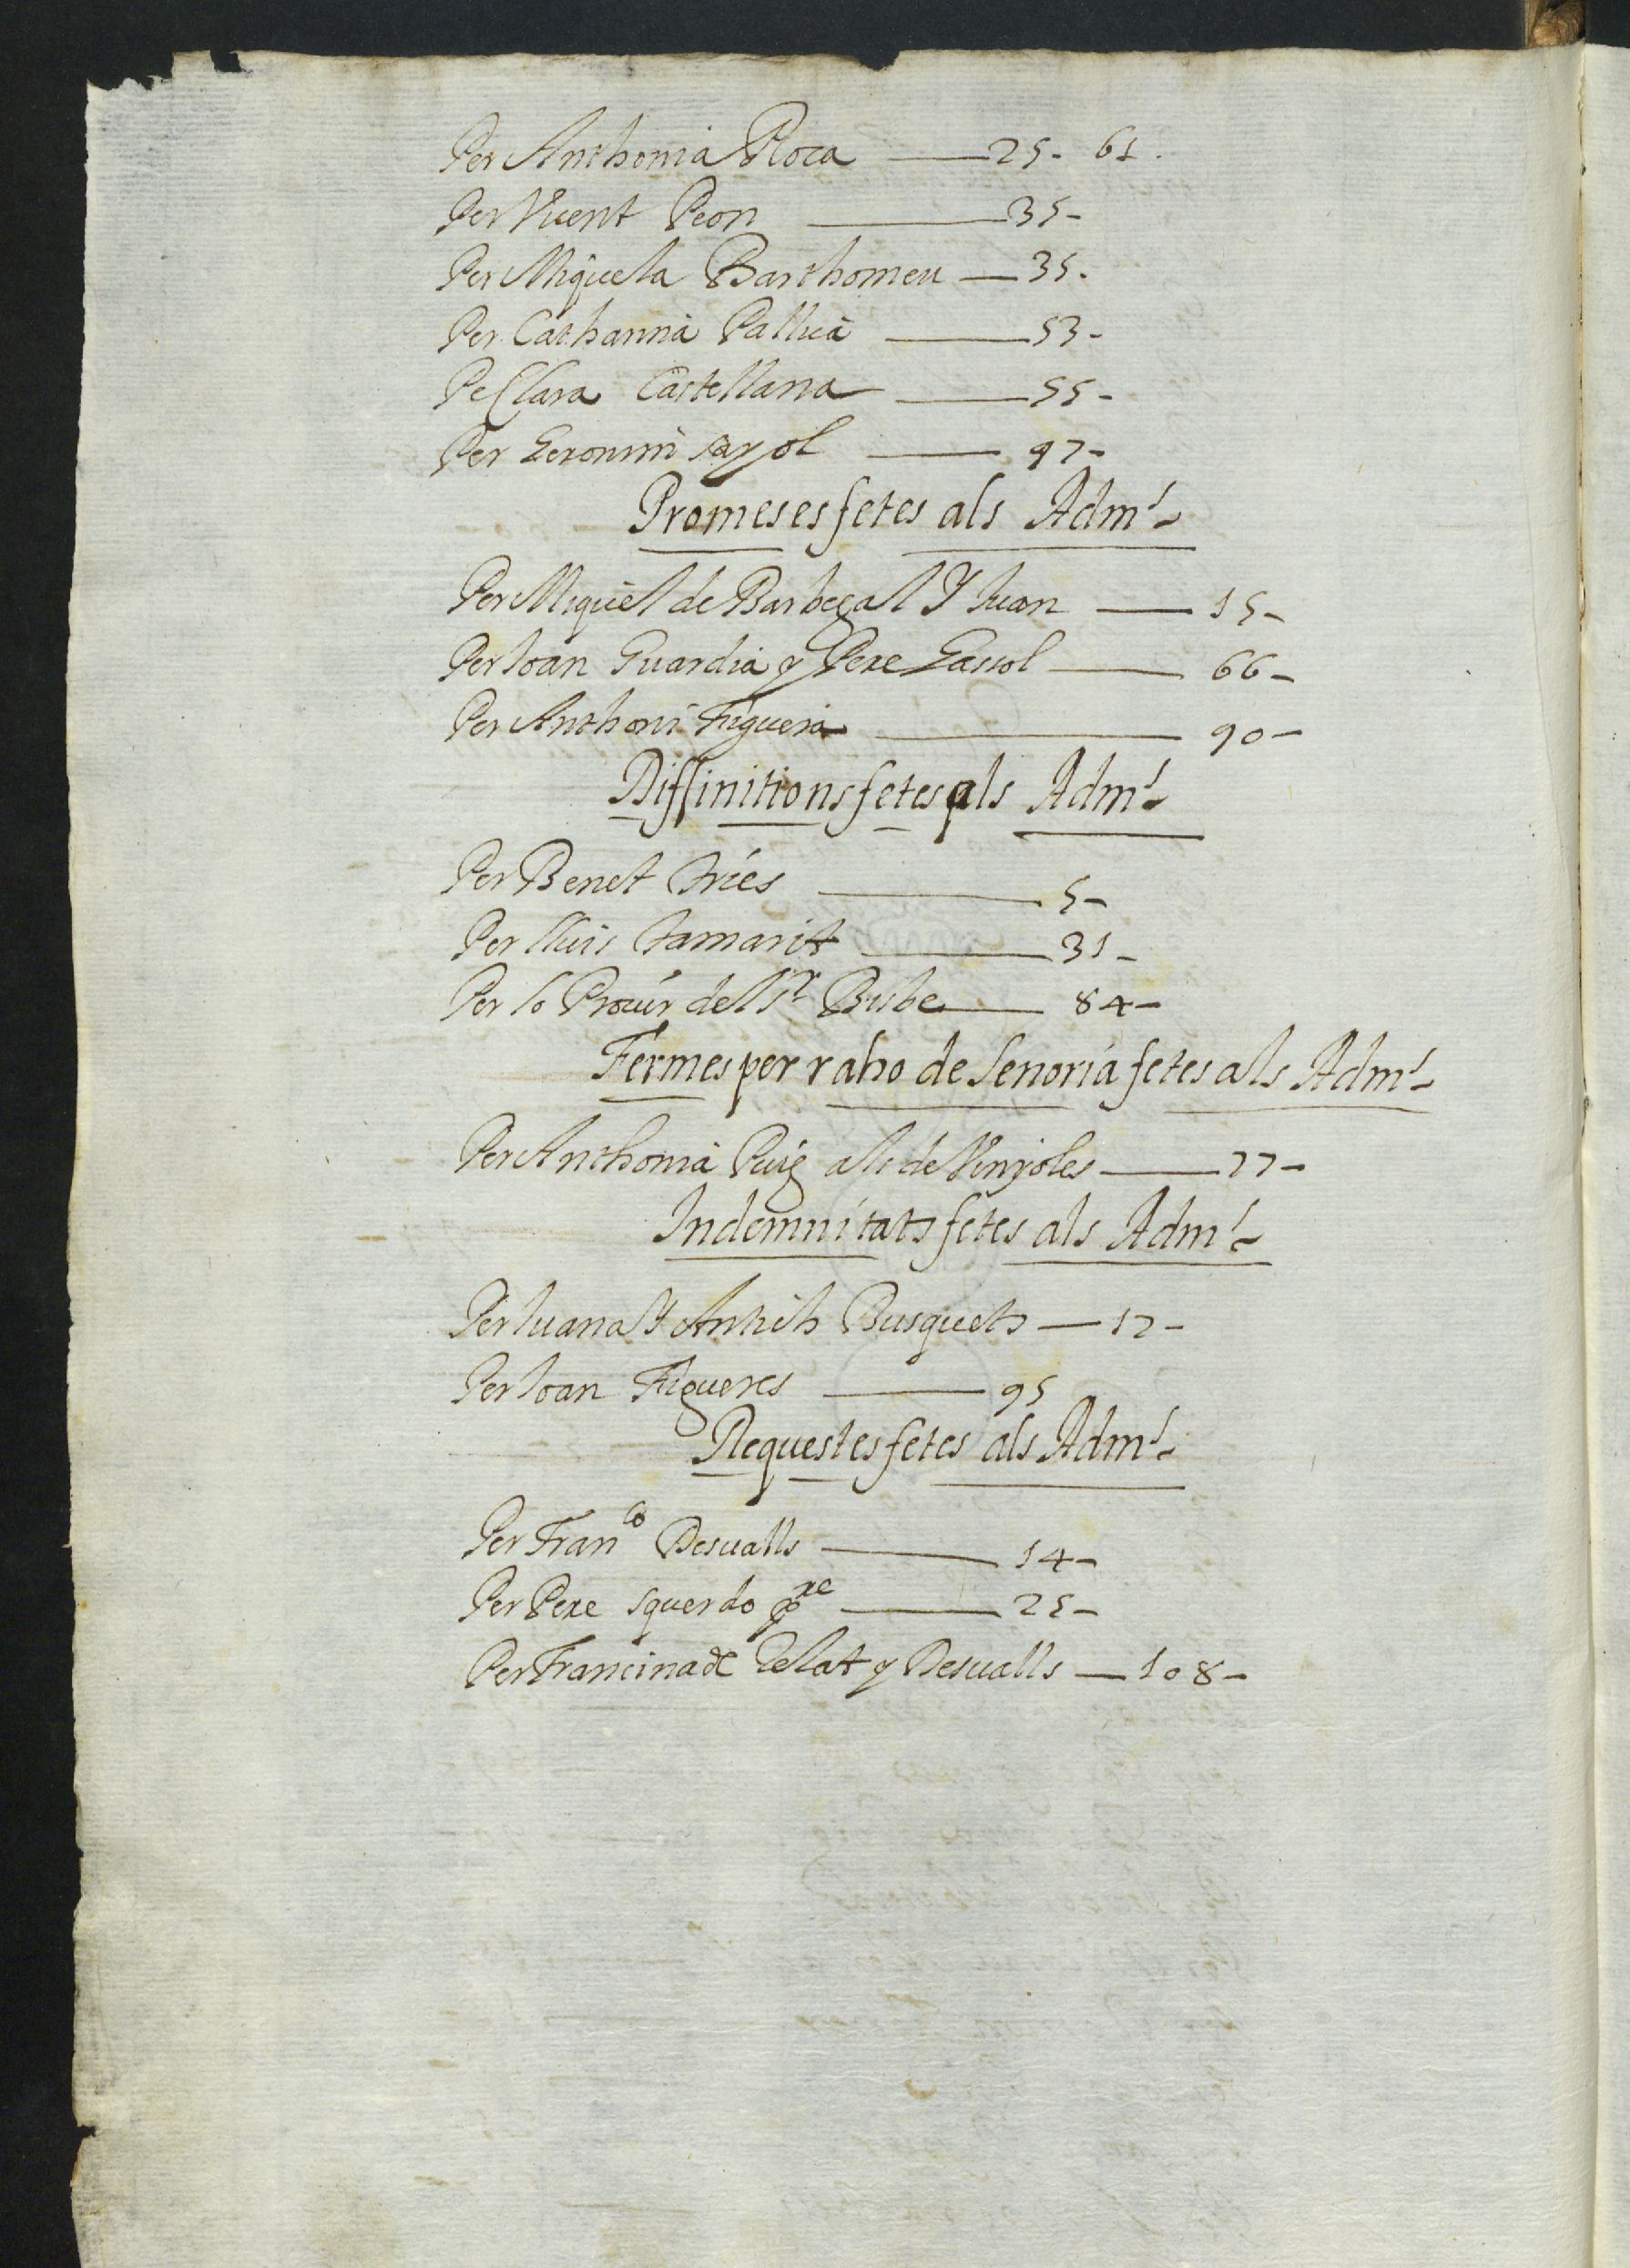 Per Anthonia Roca —— 25 - 61.
Per Vicent Peon —— 35 -
Per Miquela Barthomeu — 35.
Per Catharina Pallica —— 53 -
Pe Clara Castellana —— 55 -
Per Geronim sayol —— 97 -
Promeses fetes als Adm.rs
Per Miquel de Barbegal Y Juan —— 15 -
Per Joan Guardia y Pere Gassol —— 66 -
Per Anthoni Figuera —— 90 -
Diffinitions fetes als Adm.rs
Per Benet tries —— 5 -
Per lluis tamarit —— 31 -
Per lo Procur del Sr Bisbe —— 84 -
Fermes per raho de Senoria fetes als Adm.rs
Per Anthonia Puig als de Vinyoles —— 77 -
Indemnitats fetes als Adm.rs
Per Juana Y Antich Busquets — 17 -
Per Joan Figueres —— 95
Requestes fetes als Adm.rs
Per Franco Desvalls —— 14 -
Per Pere squerdo pre —— 25 -
Per Francina de Gelat y Desvalls — 108 -